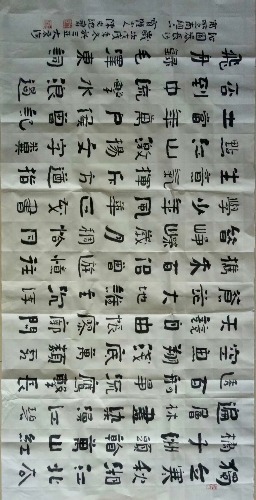 獨立寒秋湘江北去
橘子洲頭看萬山紅
遍層林盡染漫江碧
透百舸爭流鷹擊長
空魚翔淺底萬類霜
天競自由悵寥廓問
蒼茫大地誰主沉浮
攜來百侶曾遊憶往
昔崢嶸歲月稠恰同
學少年風華正茂書
生意氣揮斥方遒指
點江山激揚文字糞
土當年萬戶侯曾記
否到中流擊水浪遏
飛舟 錄毛澤東詞
沁園春長沙